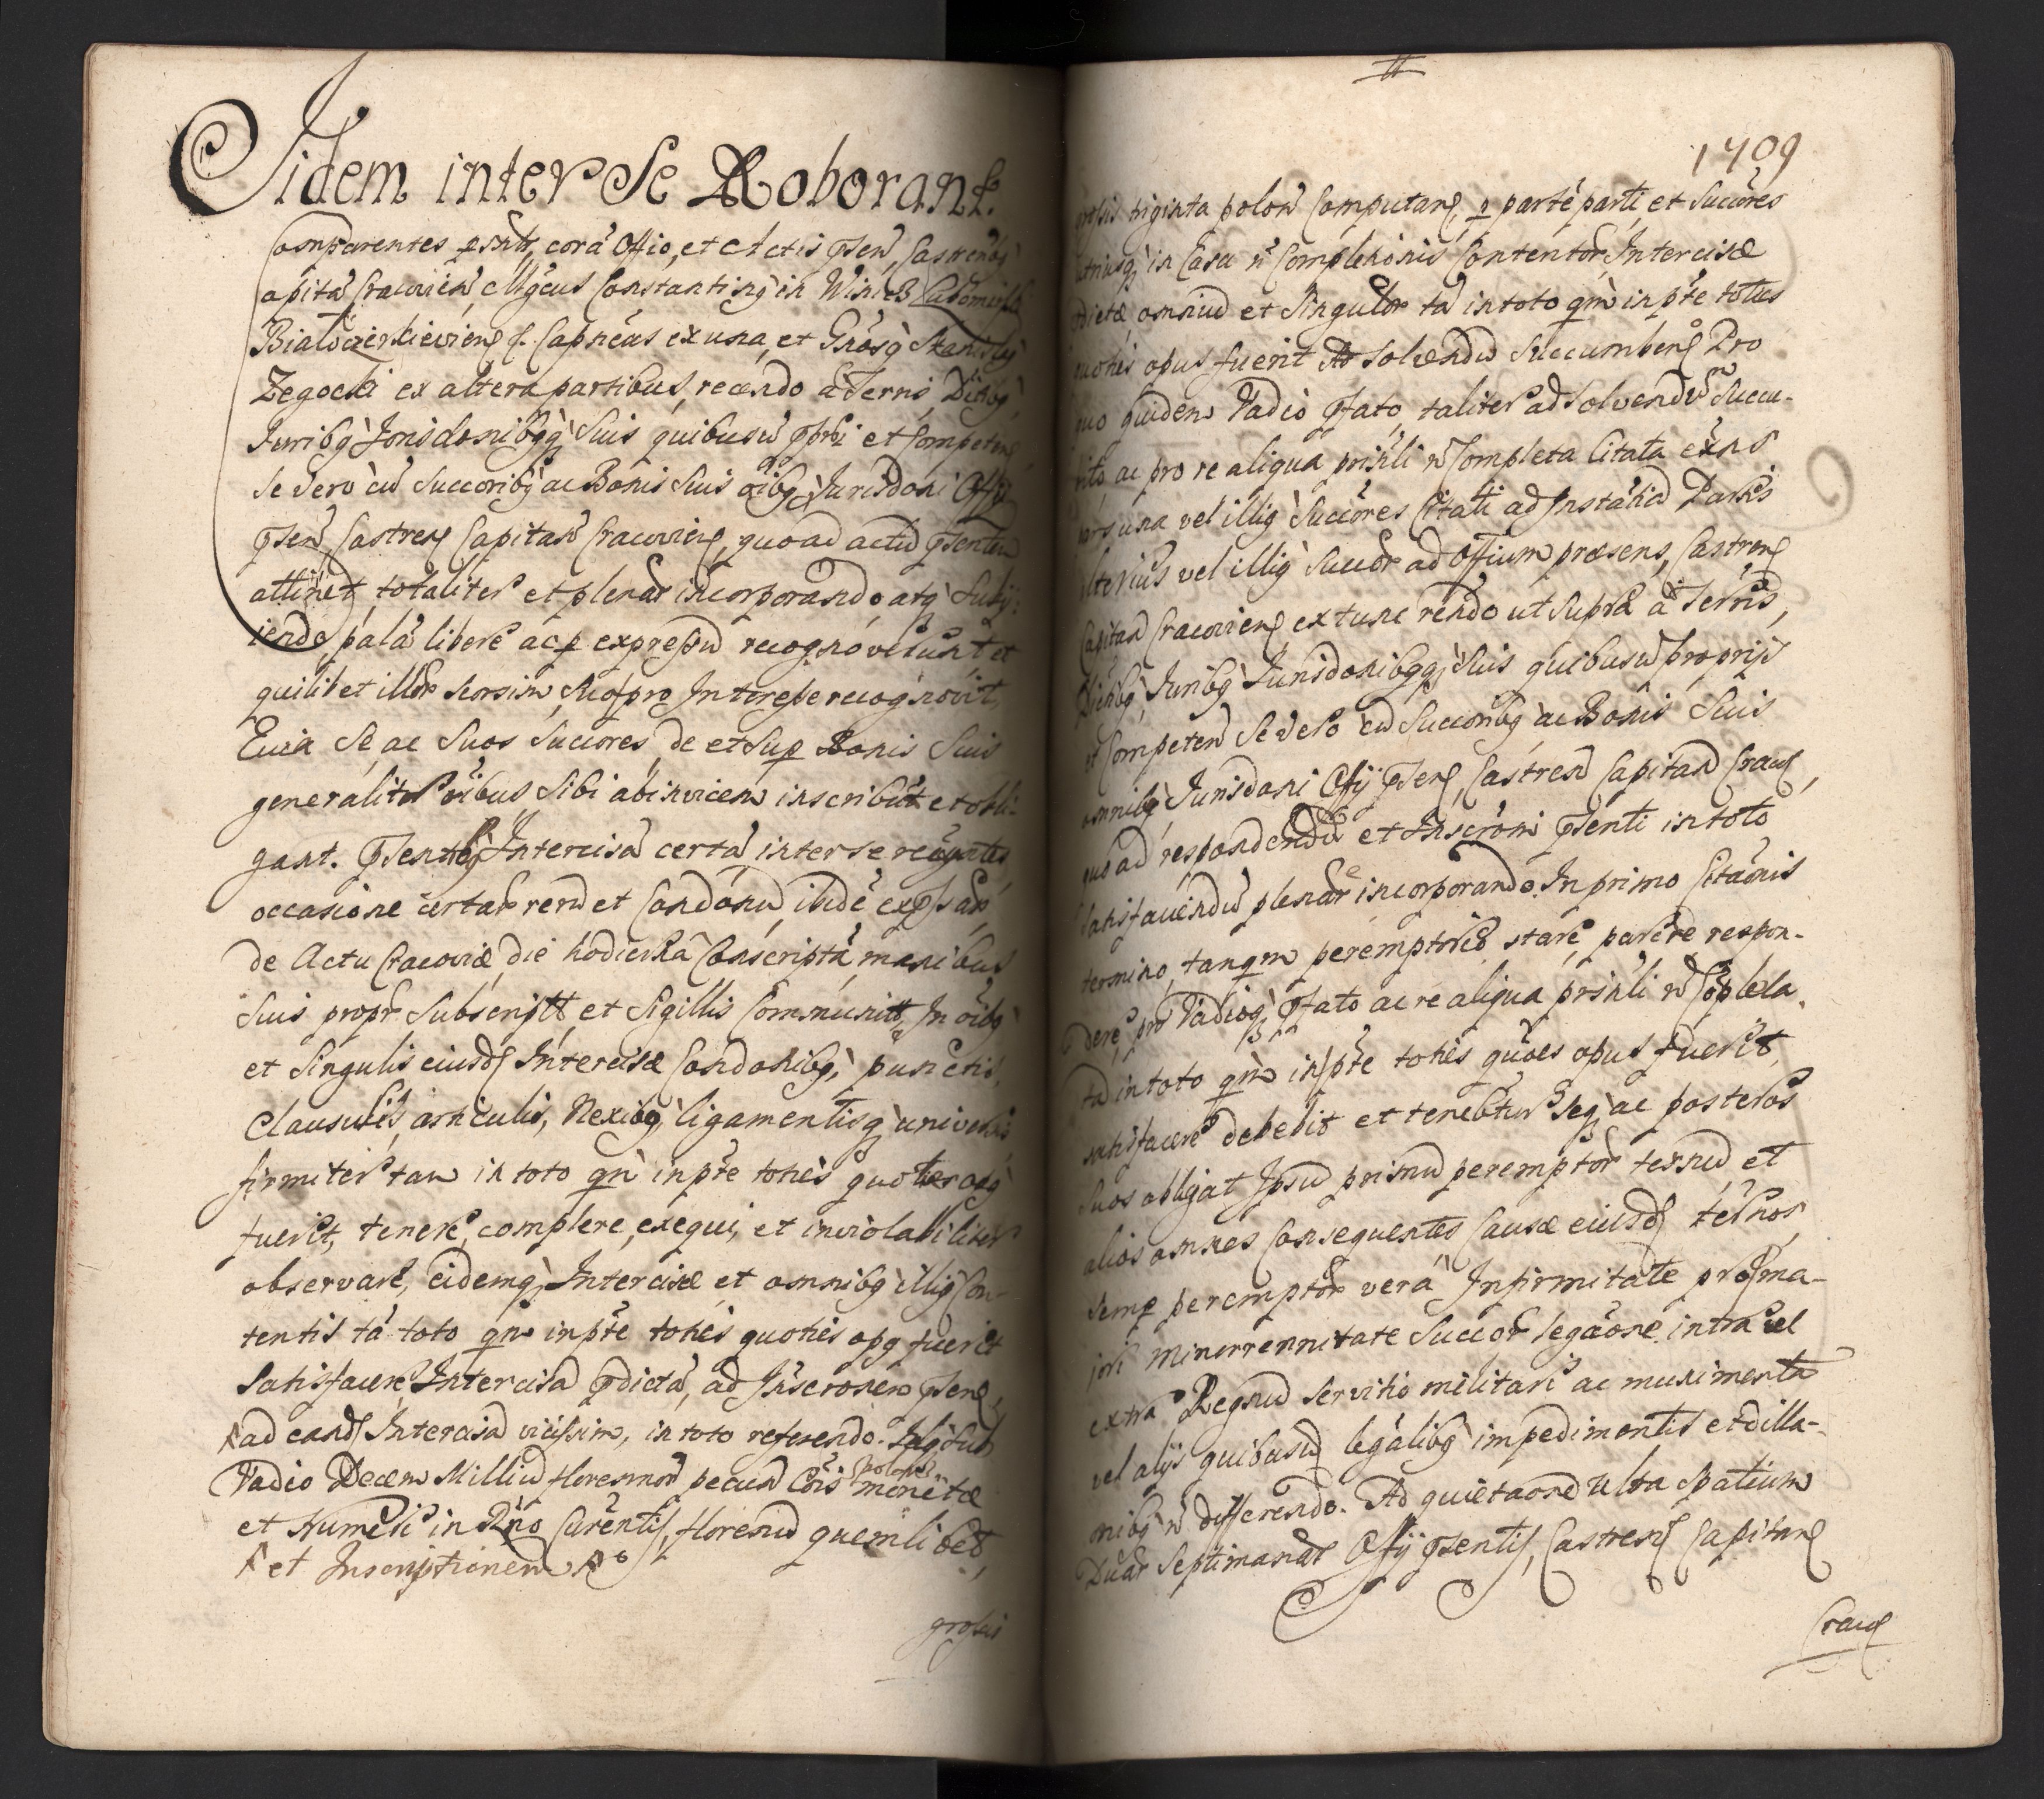 Iidem inter Se Roborant.
Comparentes psnlr, corā Offio, et Actis psen, Castrenbq
Capitā Cracovien Mgcus Constantinq in Winicz
Białocerkievien Capneus ex una, et Gnosq Stanislaq
Zegocki ex altera partibus, recendo a Terris, Ditioq
Juribq Jurisdonibqq suis quibusuis pprijs et Competen
Se vero cū Succoribq ac Bonis suis oibq Jurisdoni Offij
psen, Castren Capitan Cracovien, quoad actū psentem
attinet, totaliter et plenar incorporando atq subij-
iendo palā libere ac p expressū recognoverunt et
quilibet illor seorsim, suo pro Interesse recognovit,
Quia Se, ac Suos Succores, de et sup Bonis Suis
generaliter oibus Sibi abinvicem inscribūt et obli-
gant. psentibq Intercisā certā inter se recogntes,
occasione certar rerū et Condonū indē expssar
de Actu Cracoviæ die hodierna Conscriptā manibus
suis propr Subscript, et Sigillis Communit, In oibq
et Singulis eiusd Intercisæ Condonibq, punctis,
Clausulis, articulis, Nexibq ligamentisq universis
firmiter tam in toto qm in pte toties quoties opq
fuerit, tenere, complere, exequi, et inviolabiliter
observare, eidemq Intercisæ et omnibq illiq Con-
tentis tā toto qm in pte toties quoties opq fuerit
Satisfacere Intercisā pdictā, ad Inscronem psen,
ad eand Intercisā vicissim, in toto referendo. Idq sub
Vadio Decem Milliū florenor pecun Cois polonc monetæ
et Numeri in Rno Curentis, florenū quemlibet,
et Inscriptionem
grossis
1409
grossis triginta polon Computan, p parte parti et Succores
utriusq in Casu n Completionis Contentor Intercisæ
pdictæ omniū et Singulor tā in toto qm in pte toties
quoties opus fuerit Solvendū Succumben Pro
quo quidem Vadio pfato, taliter ad solvendū Succu-
bito, ac pro re aliqua prinli n Completa Citata exns
pars una vel illiq Succores Citati ad Instantiā Partis
alterius vel illiq Succor ad Offium præsens, Castren
Capitan Cracovien ex tunc rendo ut supra a Terris,
Ditiobq Juribq Jurisdonibqq suis quibusuis proprijs
et Competen Se vero cū Succoribq ac Bonis Suis
omnibq Jurisdoni Offij psen, Castren Capitan Crac,
quo ad respondendū et Inscroni psenti in toto
Satisfaciendū plenar incorporando. In primo Citaonis
termino, tanqm peremptorio, stare, parere respon-
dere pro Vadioq pfato ac re aliqua prinli n Copleta
tā in toto qm in pte toties quoes opus fuerit,
satisfacere debebit et tenebtur seq ac posteros
Suos obligat Ipsū primū peremptor ternū et
alios omnes Consequentes Causæ eiusd ternos
semp peremptor vera Infirmitate pr ma-
jori Minorrennitate Succor legaone intra vel
extra Regnū servitio militari ac munimenta
vel alijs quibusuis legalibq impedimentis et dilla-
nibq n differendo. Ad quietaonē ultra spatium
Duar Septimanar Offij psentis, Castren Capitan
Crac